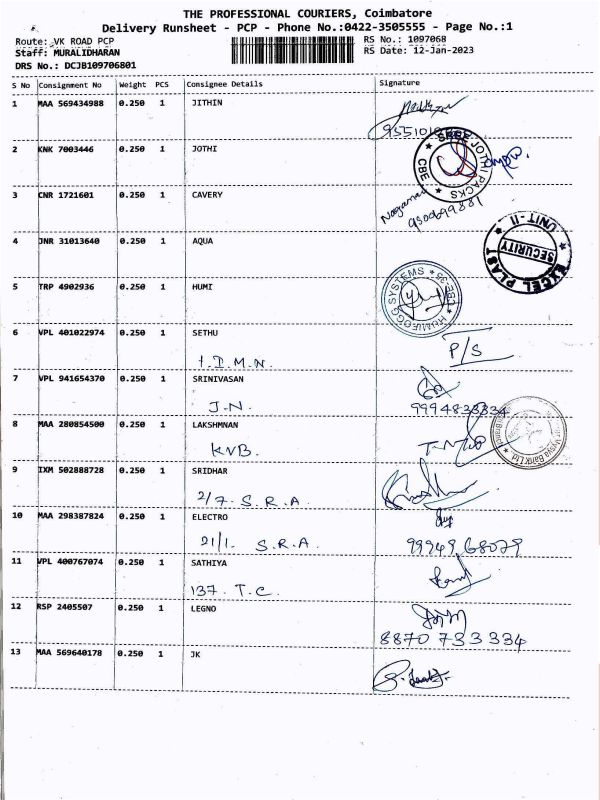 THE PROFESSIONAL COURIERS, Coimbatore
Delivery Runsheet - PCP - Phone No.:0422-3505555 - Page No.:1
Route: VK ROAD PCP RS No.: 1097068
Staff: MURALIDHARAN RS Date: 12-Jan-2023
DRS No.: DCJB109706801
S No Consignment No Weight PCS Consignee Details Signature
1 MAA 569434988 0.250 1 JITHIN
2 KNK 7003446 0.250 1 JOTHI
SREE JOTHI PACKS ★ CBE ★
3 CNR 1721601 0.250 1 CAVERY
4 JNR 31013640 0.250 1 AQUA
EXCEL PLAST UNIT-II SECURITY
5 TRP 4902936 0.250 1 HUMI
HUMIFOGG SYSTEMS ★ CBE-35 ★
6 VPL 401022974 0.250 1 SETHU
I.D.M.N. P/S
7 VPL 941654370 0.250 1 SRINIVASAN
J.N. 9994833334
8 MAA 280854500 0.250 1 LAKSHMNAN
KVB.
Vysya Bank Ltd
9 IXM 502888728 0.250 1 SRIDHAR
2/7. S.R.A.
10 MAA 298387824 0.250 1 ELECTRO
21/1. S.R.A. 99949 68079
11 VPL 400767074 0.250 1 SATHIYA
137. T.C.
12 RSP 2405507 0.250 1 LEGNO
8870 733334
13 MAA 569640178 0.250 1 JK